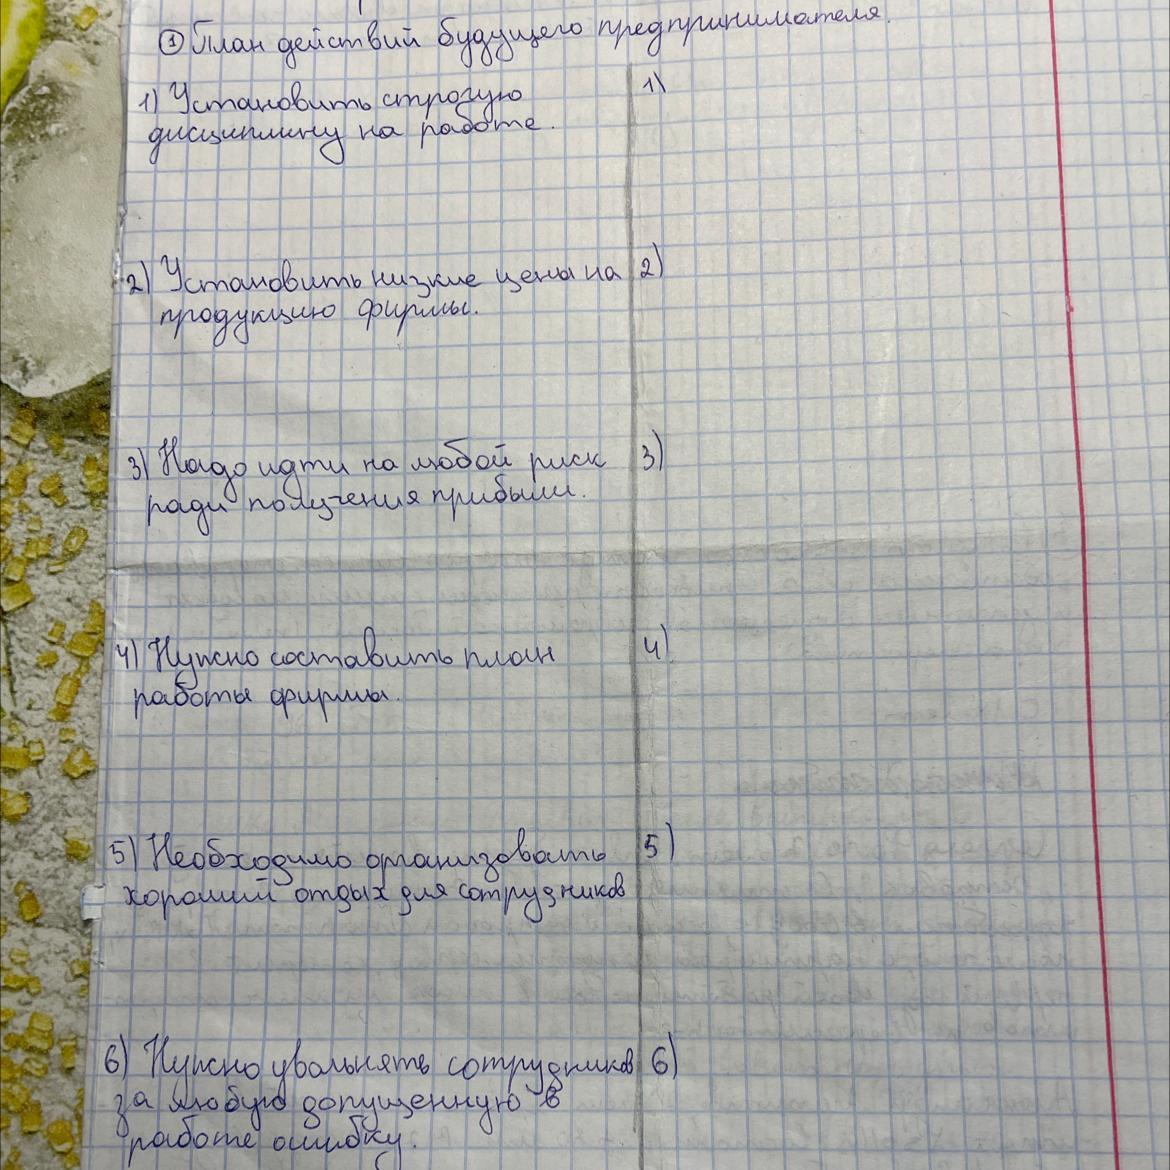 ① План действий будущего предпринимателя.
1) Установить строгую
дисциплину на работе.
1)
2) Установить низкие цены на
продукцию фирмы.
2)
3) Надо идти на любой риск
ради получения прибыли.
3)
4) Нужно составить план
работы фирмы.
4)
5) Необходимо организовать
хороший отдых для сотрудников
5)
6) Нужно увольнять сотрудников
за любую допущенную в
работе ошибку.
6)